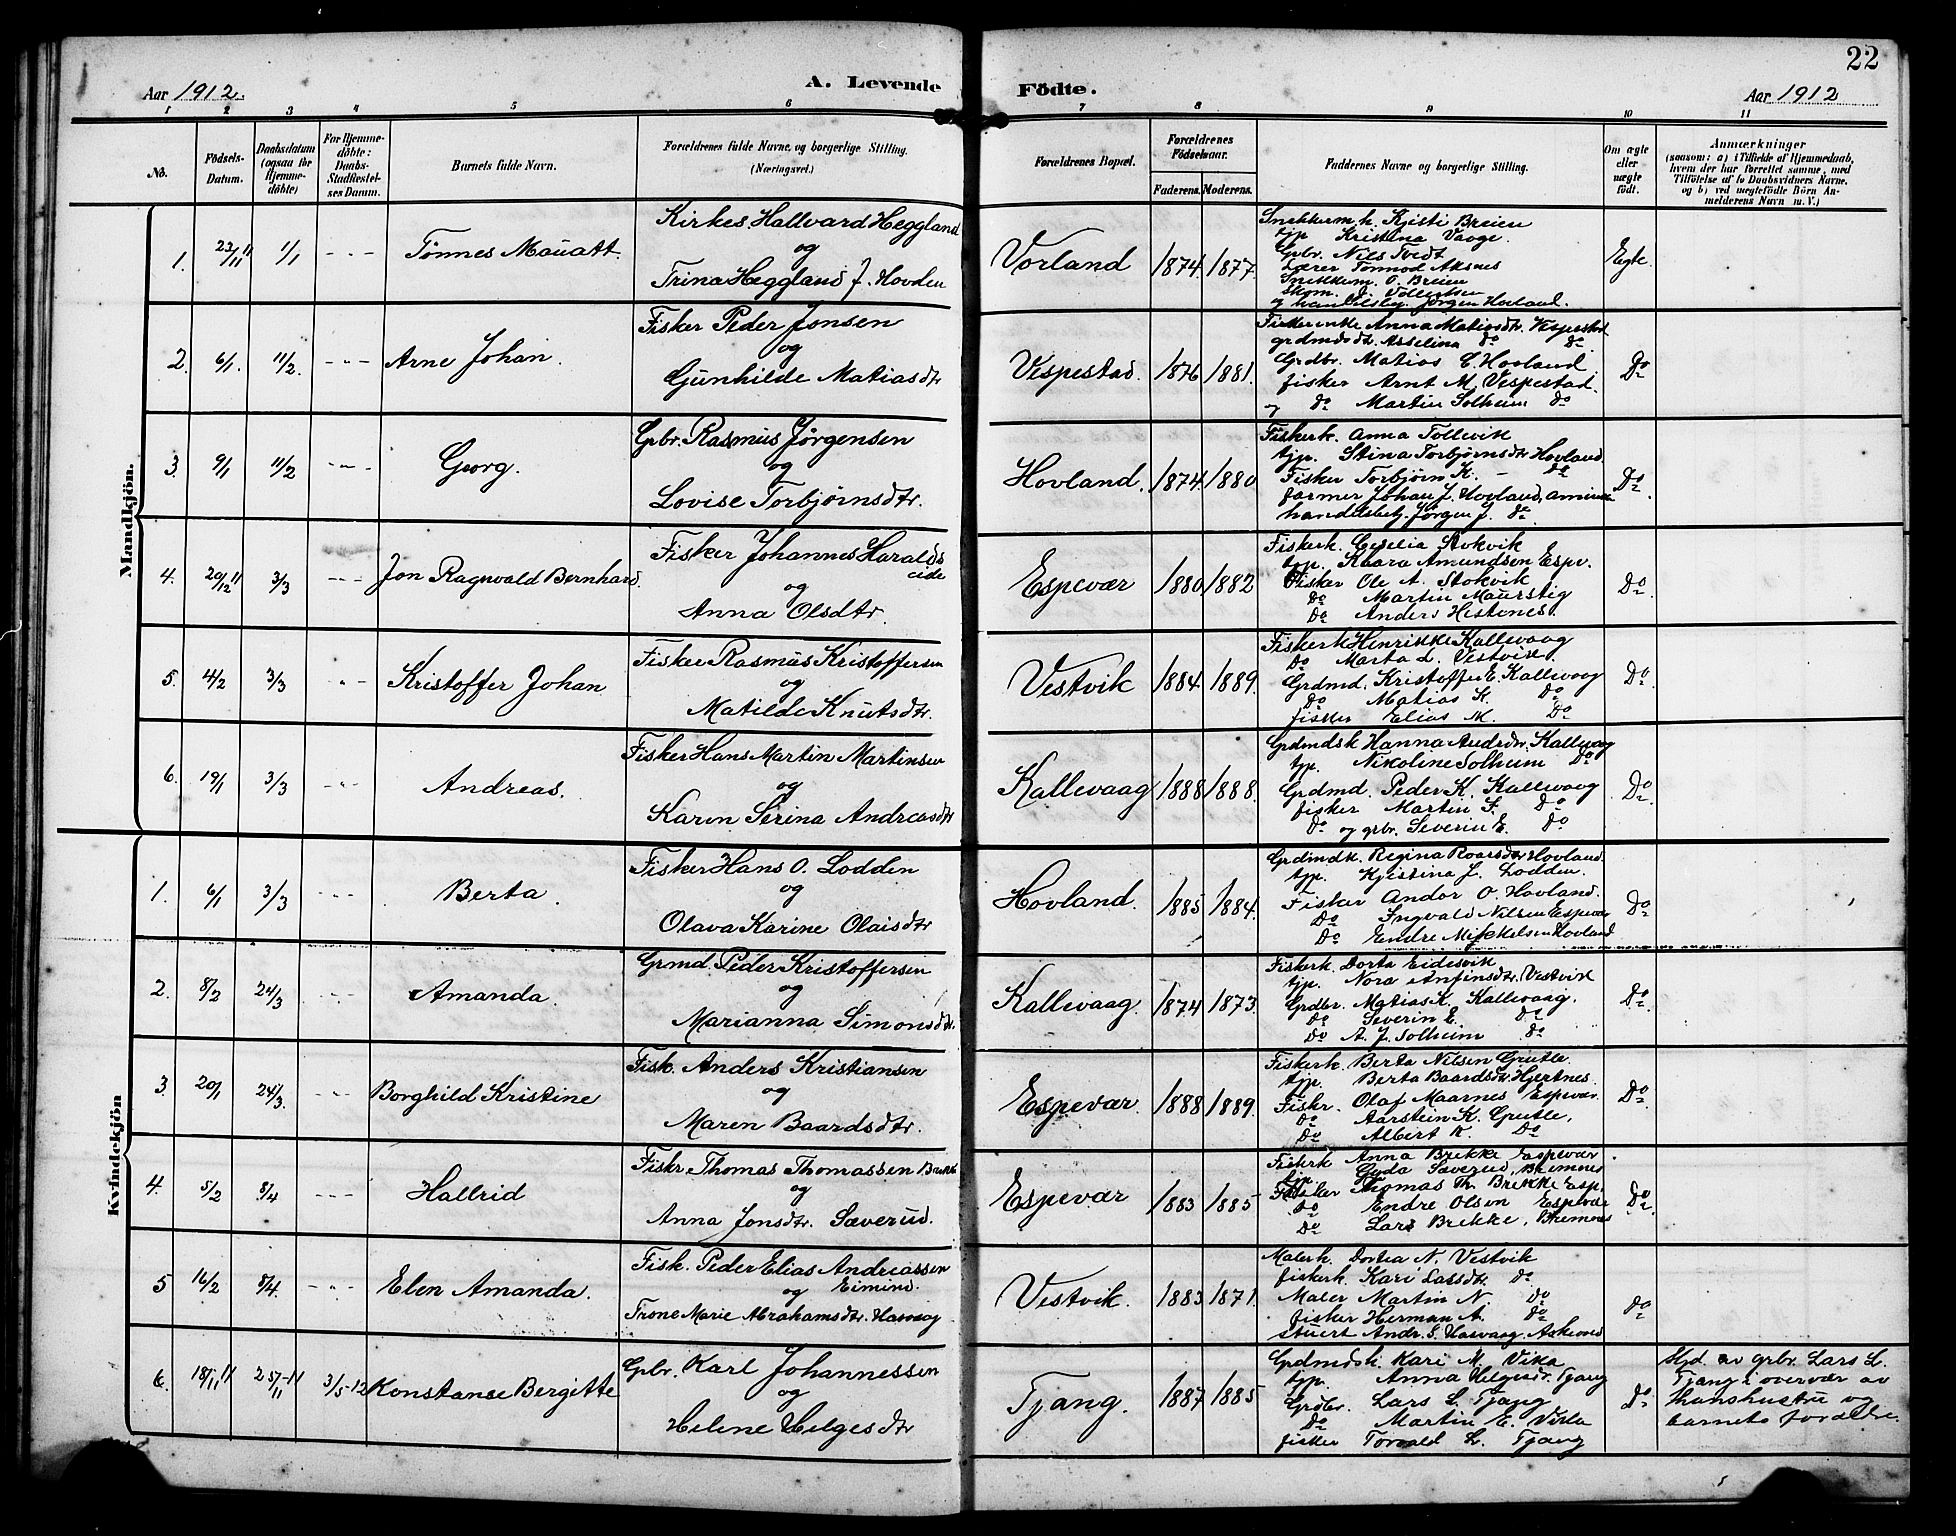 22
Aar 1912.
A. Levende Fødte.
Aar 1912
1 2 3 4 5 6 7 8 9 10 11
No.
Fødsels-Datum.
Daabsdatum (ogsaa for Hjemme-døbte)
For Hjemme-døbte: Daabs-Stadfæstel-ses Datum.
Barnets fulde Navn.
Forældrenes fulde Navne, og borgerlige Stilling. (Næringsvei.)
Forældrenes Bopæl.
Forældrenes Fødselsaar.
Faderens. Moderens.
Faddernes Navne og borgerlige Stilling.
Om ægte eller uægte født.
Anmærkninger
(saasom: a) i Tilfælde af Hjemmedaab, hvem der har forrettet samme, med Tilføielse af to Daabsvidners Navne, og b) ved uægtefødte Børn An-melderens Navn m. V.)
Mandkjön.
1. 23/11 11 1/1 - " - Tönnes Mauatt.
Kirkes. Hallvard Heggland
og
Trina Heggland f. Hovden
Vorland 1874. 1877.
Snekkerm.k. Kjisti Breien
tjp. Kristina Vaage.
Gbr. Nils Tvedt
Lærer Tormod Aksnes
Snekkerm. O. Breien
og handelsbg. Jörgen Hovland.
Egte.
2. 6/1. 11/2. - " - Arne Johan.
Fisker Peder Jonsen
og
Gunhilde Matiasdtr
Vespestad. 1876 1881.
Fiskerenke Anna Matiasdtr. Vespestad
grdmdsdtr. Asselina do do
Grdbr. Matias C. Hovland
fisker Arnt M. Vespestad.
og do Martin Solheim do
Do
3. 9/1 11/2 - " - Georg.
Gbr. Rasmus Jörgensen
og
Lovise Torbjörnsdtr.
Hovland. 1874. 1880
Fiskerk. Anna Tollevik
tjp. Stina Torbjörnsdtr Hovland.
Fisker Torbjörn K. - do
farmer Johan J. Hovland,
handelsbetj. Jörgen J. do
Do.
4. 20/12 11 3/3 - " - Jon Ragnvald Bernhard.
Fisker Johannes Haralds
eide
og
Anna Olsdtr.
Espevær 1880. 1882
Fiskerk. Cecelia Stokvik
tjp. Kaara Amundsen Espv.
Fisker Ole A. Stokvik
Do Martin Maurstig
Do Anders Hestenes.
Do.
5. 4/2 3/3 " - Kristoffer Johan
Fisker Rasmus Kristoffersen
og
Matilde Knutsdtr.
Vestvik 1884. 1889.
Fiskerk Henrikke Kallevaag
Do Marta L. Vestvik.
Grdmd. Kristoffer E. Kallevaag
Do Matias K. Do
fisker Elias M. Do
Do.
6. 19/1 3/3 - " - Andreas.
Fisker Hans Martin Martinsen
og
Karen Serina Andreasdtr
Kallevaag 1888 1888.
Grdmdsk Hanna Andrdtr. Kallevaag
tjp. Nikoline Solheim Do
Grdmd. Peder K. Kallevaag
fisker Martin S. Do
Do og grbr. Severin E. Do
Do.
Kvindekjön
1. 6/1 3/3 - " - Berta.
Fisker Hans O. Lodden
og
Olava Karine Olaisdtr
Hovland. 1885 1884.
Grdmdk. Regina Roarsdtr Hovland.
tjp. Kjistina J. Lodden.
Fisker Andor O. Hovland.
Do Ingvald Nilsen Espevær
Do Endre Mikkelsen Hovland
Do
2. 8/2 24/3 - " - Amanda.
Grmd. Peder Kristoffersen
og
Marianna Simonsdtr.
Kallevaag. 1874 1873.
Fiskerk. Dorta Eidesvik
tjp. Nora Anfinsdtr. Vestvik
Grdbr. Matias K. Kallevaag.
Do Severin E. Do
Do A. J. Solheim do
Do
3. 20/1 24/3. - " - Borghild Kristine
Fisk. Anders Kristiansen
og
Maren Baardsdtr.
Espevær. 1888 1889.
Fiskerk. Berta Nilsen Grutle.
tjp. Berta Baardsdtr. Hjertnes.
Fiskr. Olaf Maarnes Espevær.
Do Aarstein K. Grutle.
Do Albert K. Do
Do.
4. 5/2 8/4 - " - Hallrid
Fiskr. Thomas Thomassen Brekke
og
Anna Jonsdtr. Sæverud.
Espevær 1883 1885
Fiskerk Anna Brekke Espevær.
tjp. Gyda Sæverud, Bremnes
Fisker Thomas Th. Brekke Esp.
Do Endre Olsen Espevær
Do Lars Brekke, Bremnes
Do
5 16/2 8/4. - " - Elen Amanda.
Fisk. Peder Elias Andreassen
og Eimind.
Trone Marie Abrahamsdtr. Hasvaag
Vestvik. 1883 1871.
Malerk. Dortea N. Vestvik
fiskerk. Kari Larsdtr. do
Maler Martin N. Do
fisker Herman A. Do
stuert Andr. S. Hasvaag, Askevold
do
6. 18/11 11 25/11-11 3/5-12 Konstanse Bergitte
Gbr. Karl Johannessen
og
Helene Helgesdtr
Tjang. 1887 1885
Grdmdsk. Kari M. Vika
tjp. Anna Helgesdr. Tjang
Grdbr. Lars L. Tjang
Do Martin E. Vika
fisker Torvald L. Tjang
Do
Hjd. av grbr. Lars L.
Tjang i overvær av
hans hustru og
barnets forældre.